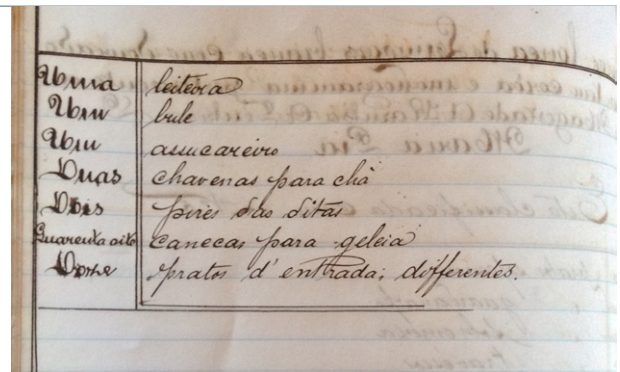 Uma leiteira
Um bule
Um assucareiro
Duas chavenas para chá
Dois pires das ditas
Quarenta oito canecas para geleia
Doze pratos d'entrada; differentes.